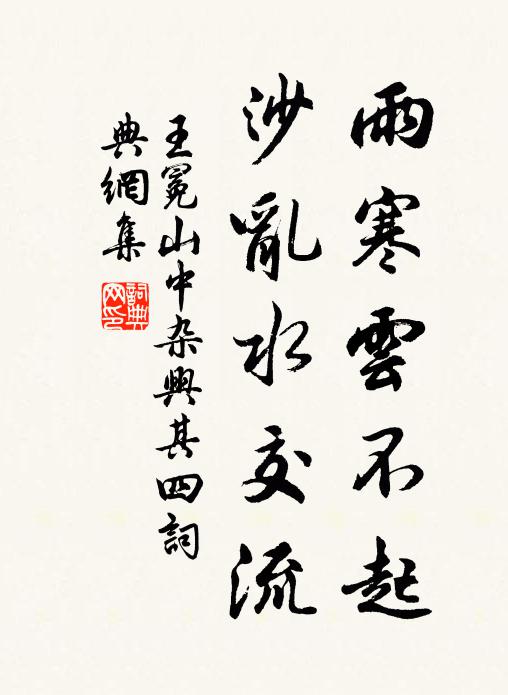 雨寒雲不起
沙亂水交流
王冕山中杂興其四詞
典網集
詞典網印